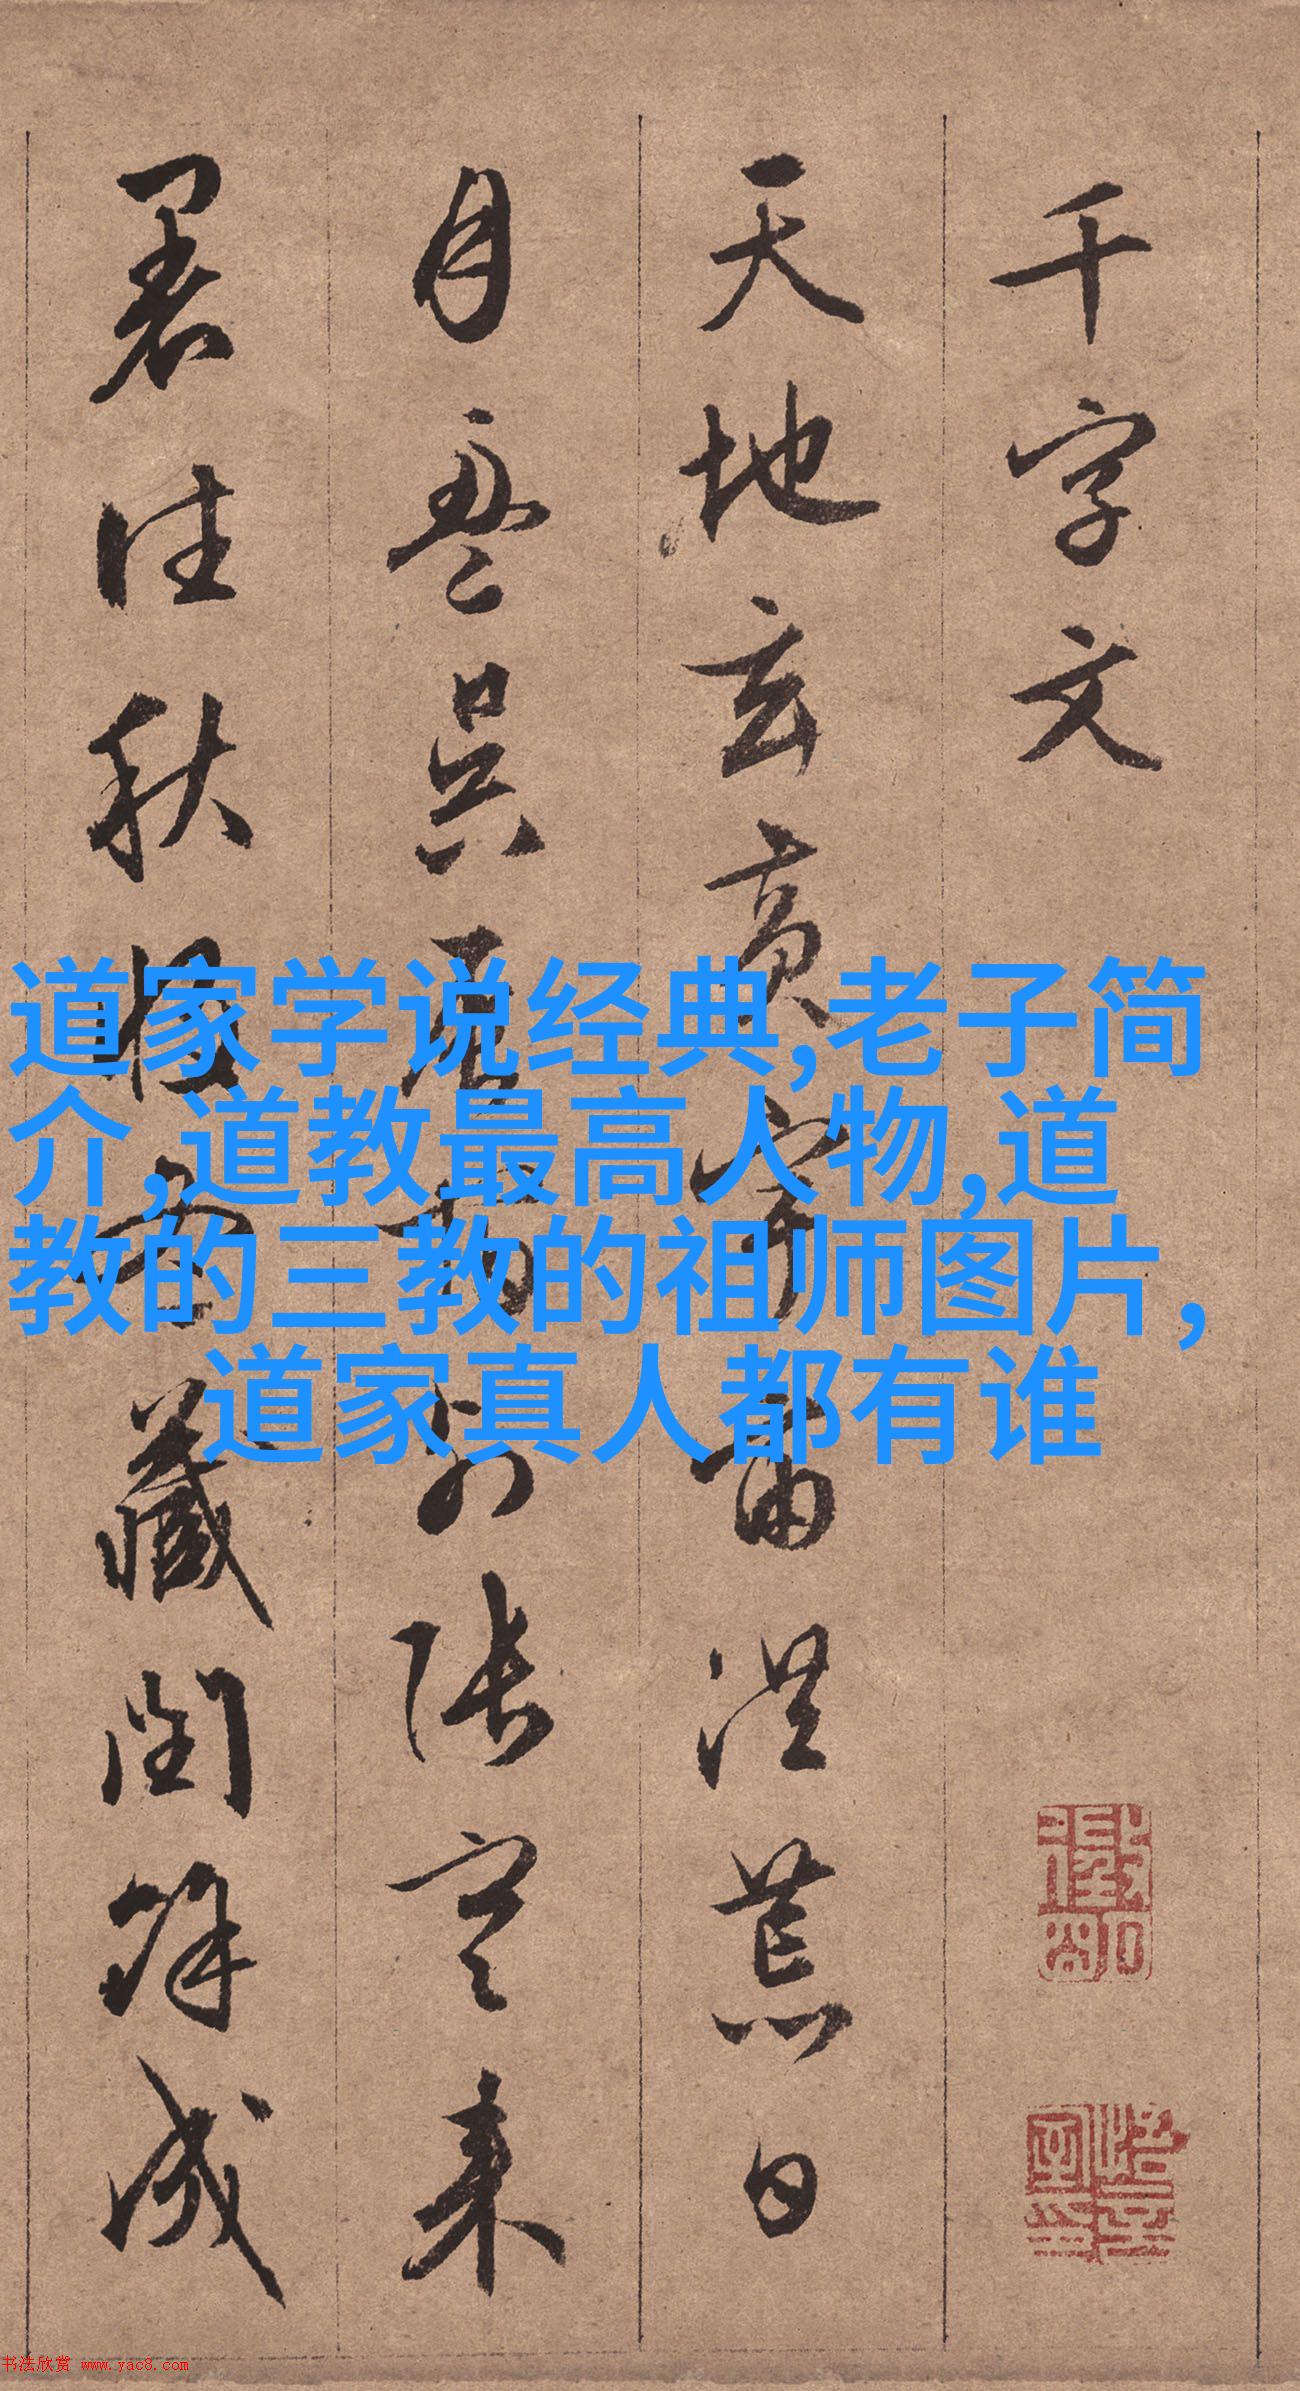 千字文
天地玄黄宇宙洪荒日
月盈昃辰宿列張寒来
暑往秋收冬藏閏餘成
道家学说经典,老子简
介,道教最高人物,道
教的三教的祖师图片,
道家真人都有谁
书法欣赏 www.yac8.com